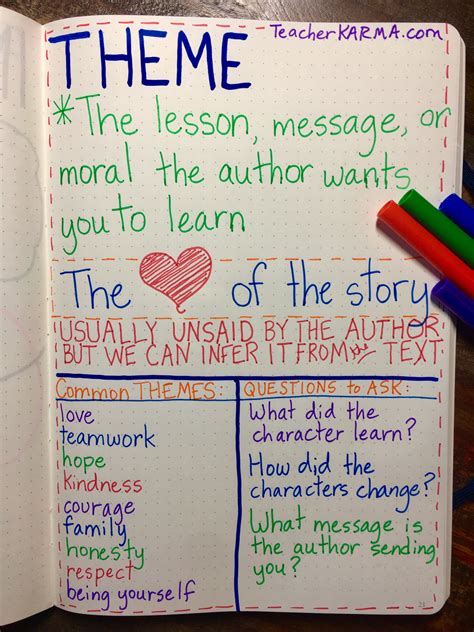 TeacherKARMA.com
THEME
*The lesson, message, or
moral the author wants
you to learn
The of the story
USUALLY UNSAID BY THE AUTHOR,
BUT WE CAN INFER IT FROM THE TEXT
Common THEMES:
love
teamwork
hope
kindness
courage
family
honesty
respect
being yourself
QUESTIONS to ASK:
What did the
character learn?
How did the
characters change?
What message is
the author sending
you?